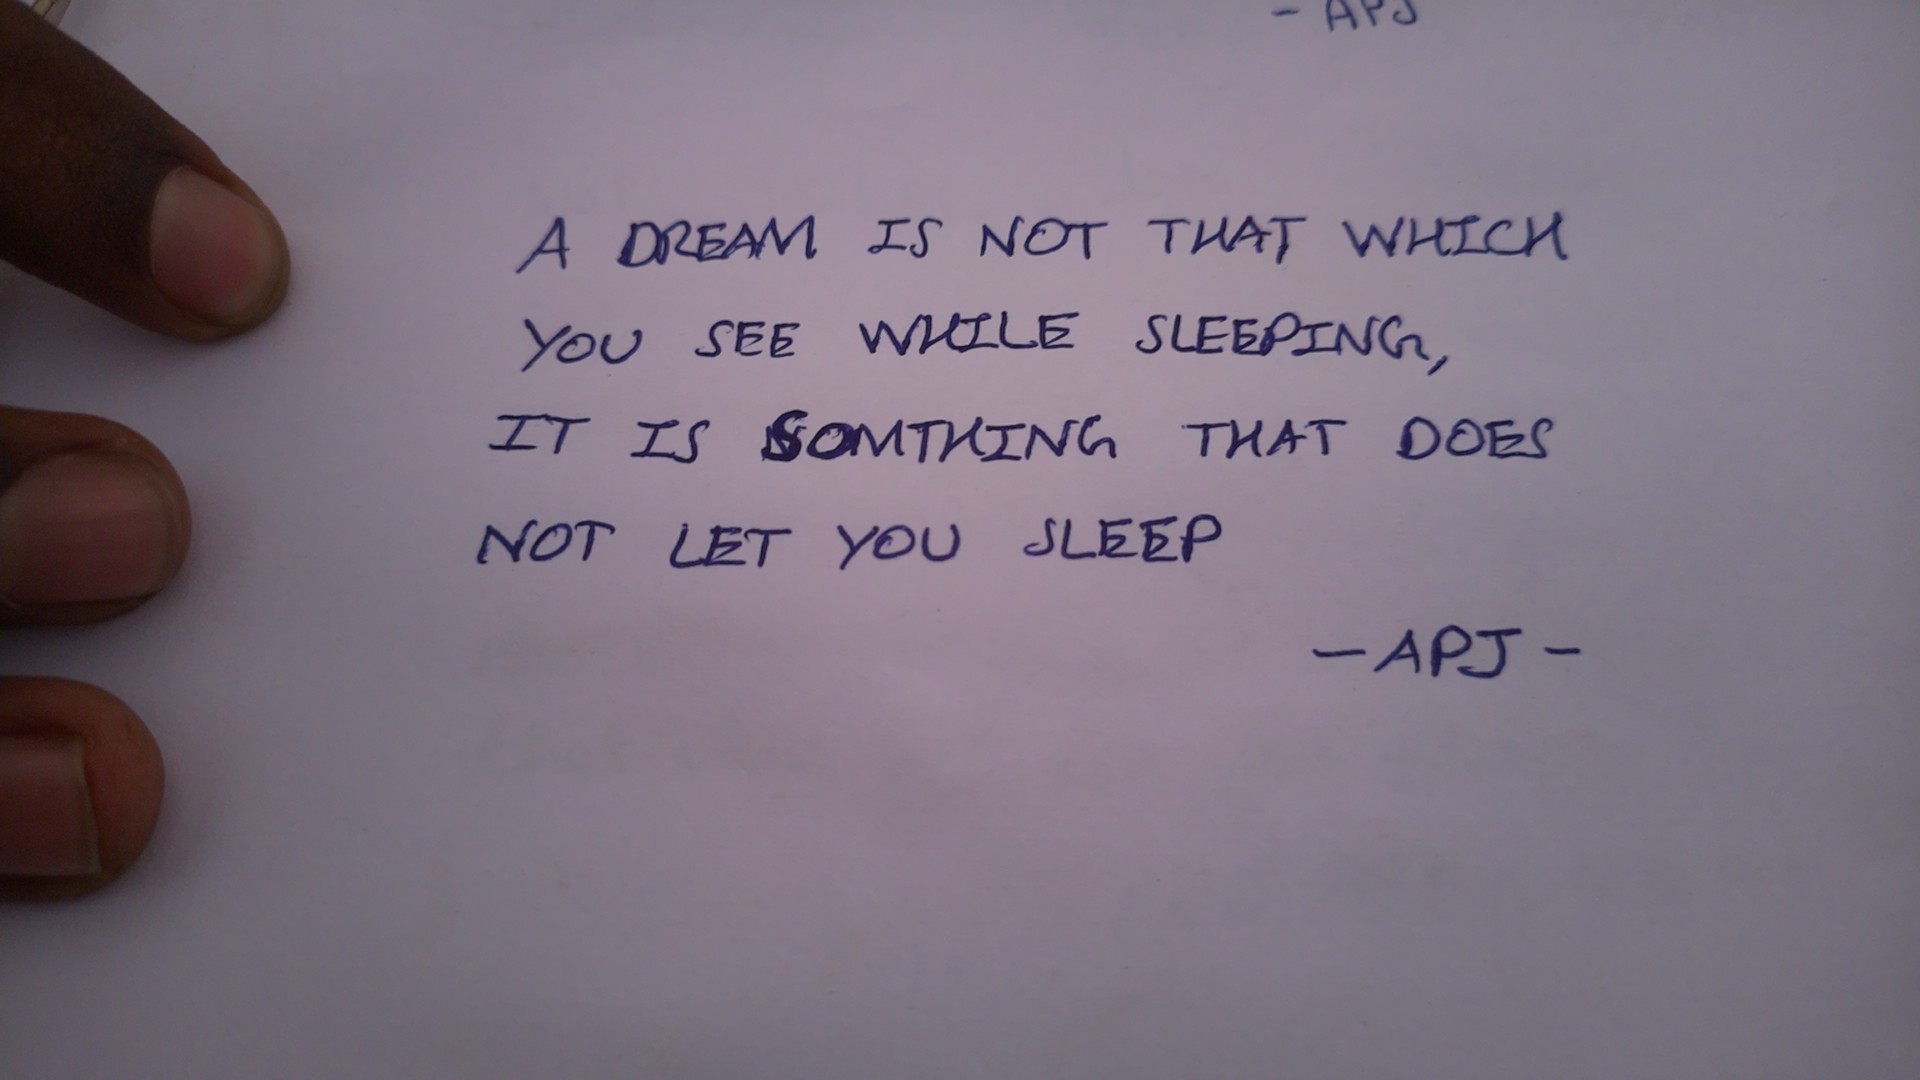 - APJ
A DREAM IS NOT THAT WHICH
YOU SEE WHILE SLEEPING,
IT IS SOMTHING THAT DOES
NOT LET YOU SLEEP
- APJ -